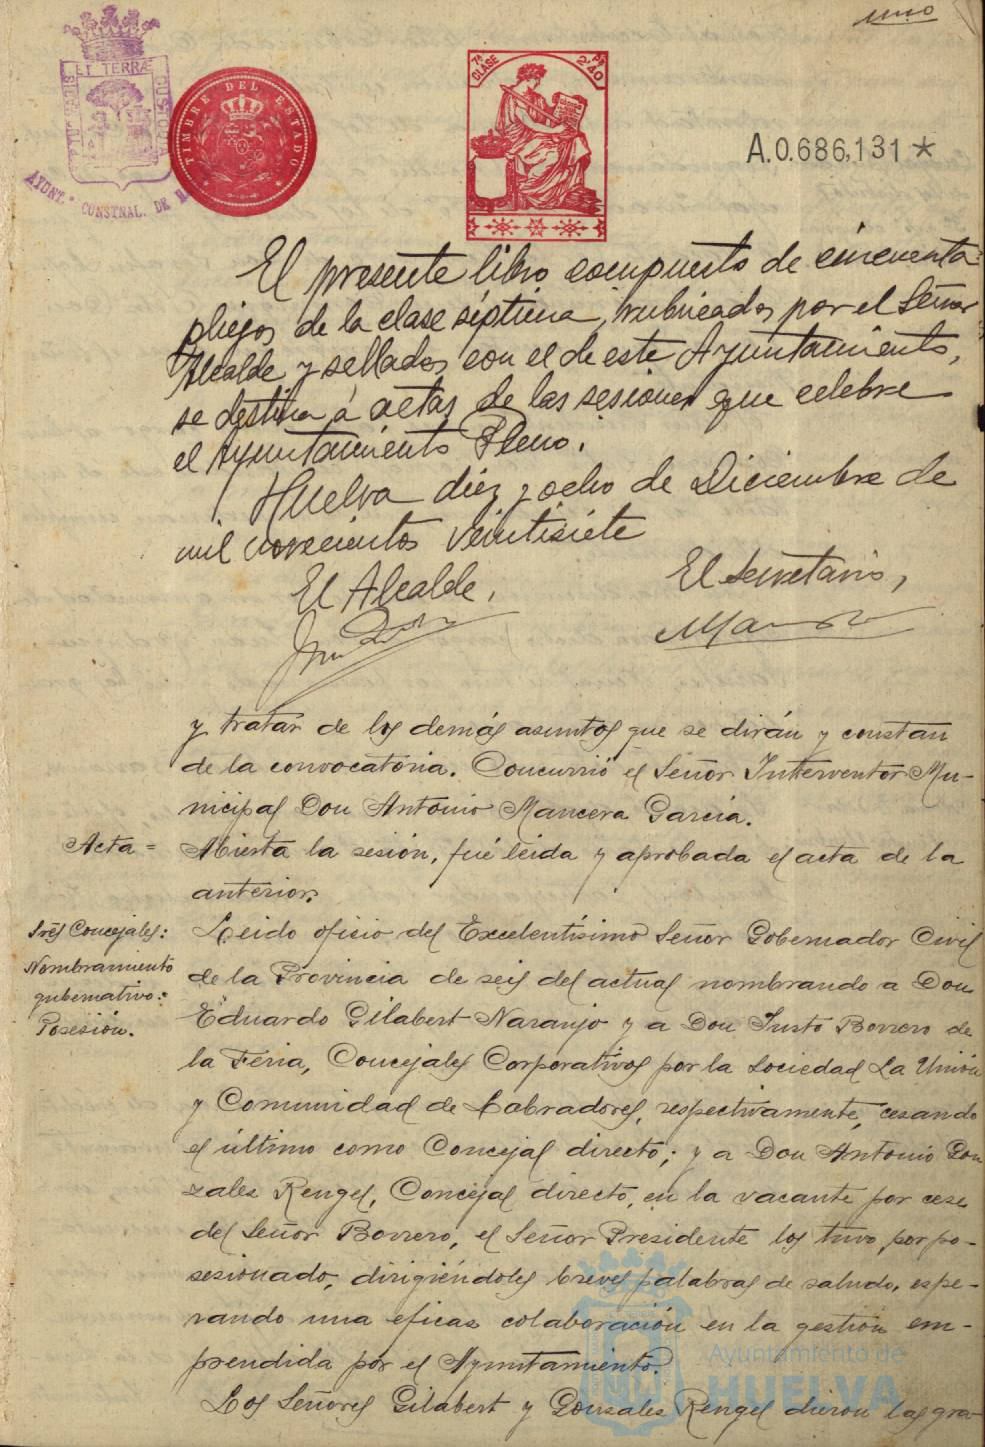 uno
SIGILLUM
ET TERRÆ
CUSTODIA
AYUNT. CONSTNAL. DE
TIMBRE DEL ESTADO
7ª CLASE
Pts 2'40
A.0.686,131*
El presente libro compuesto de cincuenta
pliegos de la clase séptima, rubricados por el Señor
Alcalde y sellados con el de este Ayuntamiento,
se destina á actas de las sesiones que celebre
el Ayuntamiento Pleno.
Huelva diez y ocho de Diciembre de
mil novecientos veintisiete
El Alcalde,
El Secretario,
y tratar de los demás asuntos que se dirán y constan
de la convocatoria. Concurrió el Señor Interventor Mu-
nicipal Don Antonio Mancera García.
Acta =
Abierta la sesión, fué leida y aprobada el acta de la
anterior.
Tres Concejales:
Nombramiento
gubernativo:
Posesión.
Leido oficio del Excelentísimo Señor Gobernador Civil
de la Provincia de seis del actual nombrando a Don
Eduardo Gilabert Naranjo y a Don Justo Borrero de
la Feria, Concejales Corporativos por la Sociedad La Unión
y Comunidad de Labradores, respectivamente, cesando
el último como Concejal directo; y a Don Antonio Gon
zales Rengel, Concejal directo, en la vacante por cese
del Señor Borrero, el Señor Presidente los tuvo por po-
sesionado, dirigiéndoles breves palabras de saludo, espe-
rando una eficas colaboración en la gestión em-
prendida por el Ayuntamiento.
Los Señores Gilabert y Gonzales Rengel dieron las gra-
Ayuntamiento de
HUELVA